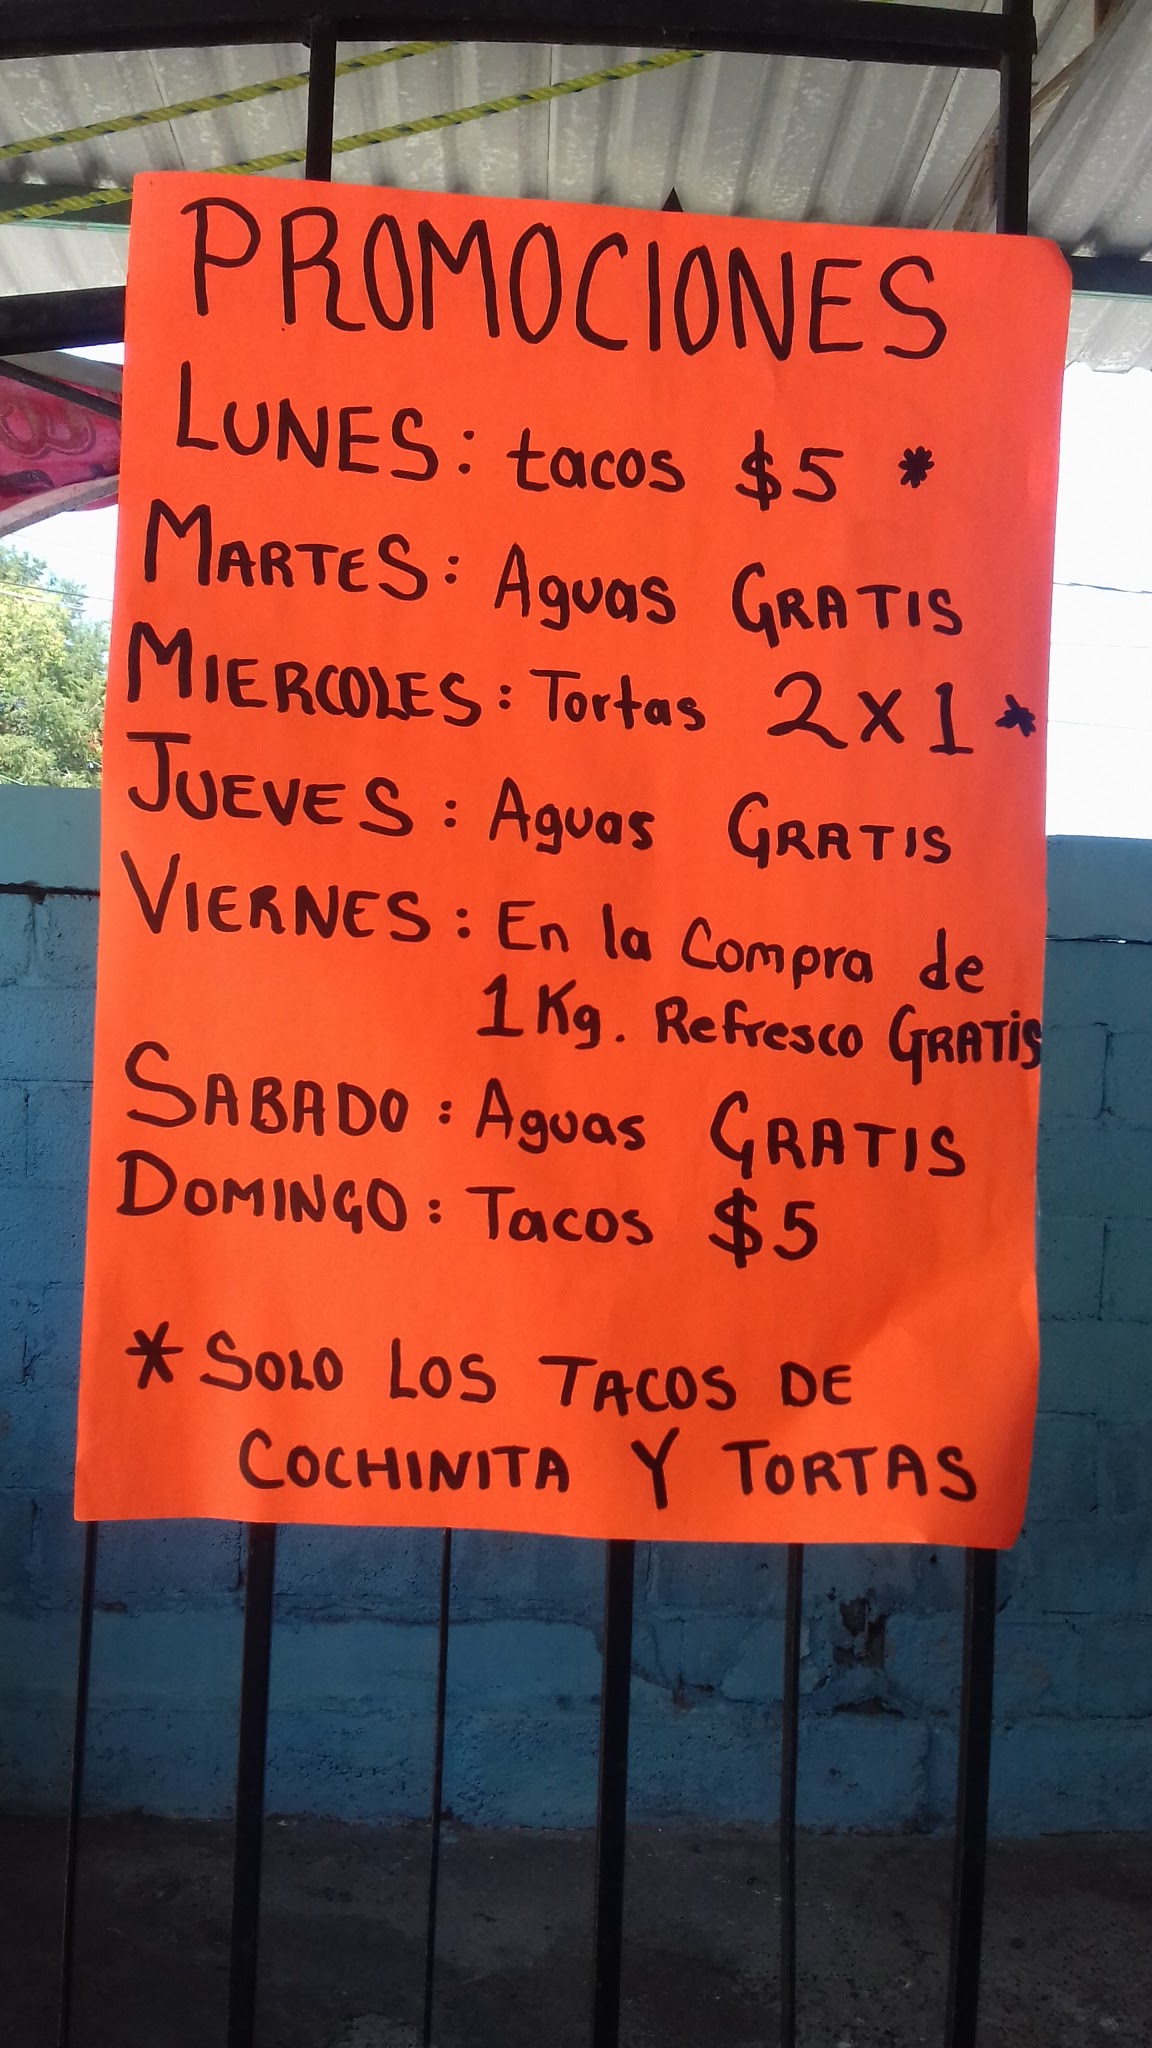 PROMOCIONES
LUNES: tacos $5 *
MARTES: Aguas GRATIS
MIERCOLES: Tortas 2x1 *
JUEVES: Aguas GRATIS
VIERNES: En la Compra de
1Kg. Refresco GRATIS
SABADO: Aguas GRATIS
DOMINGO: Tacos $5
* SOLO LOS TACOS DE
COCHINITA Y TORTAS